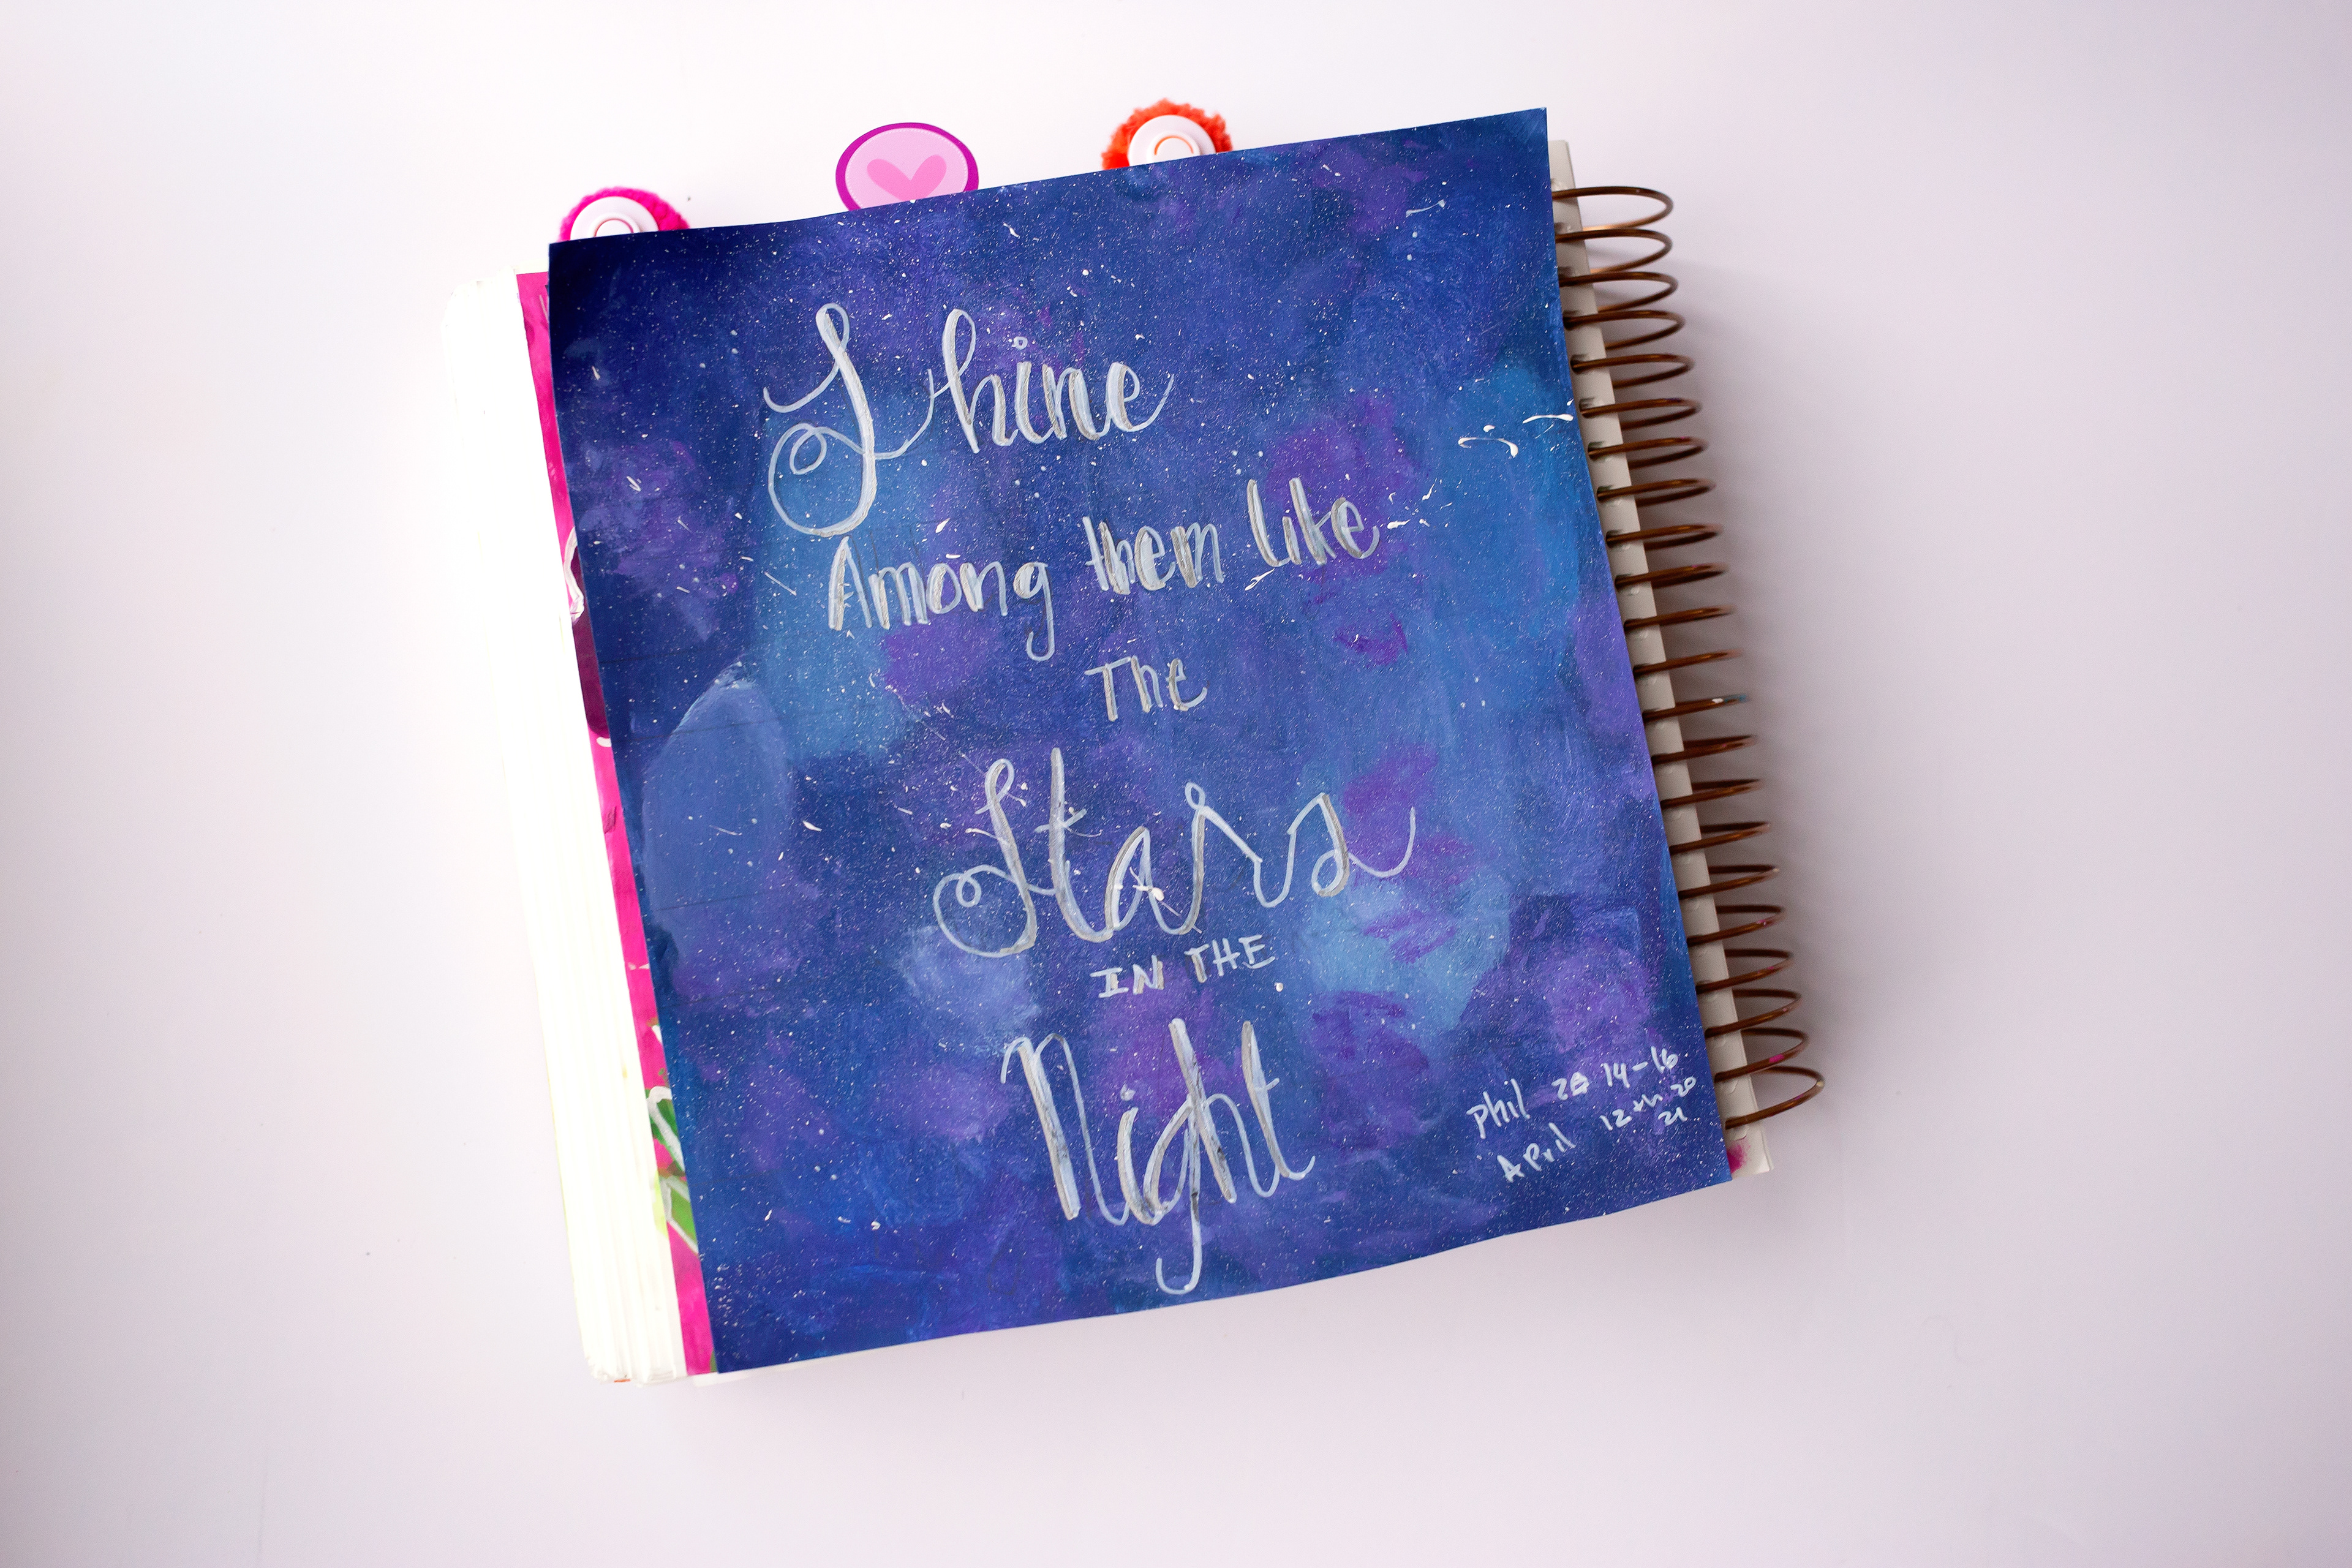 Shine
Among them Like
The
Stars
IN THE
Night
phil 2 14-16
April 12th 20
21